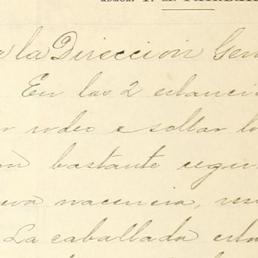 a la Direccion Gen
En las 2 estanci
r rodeo e soltar lo
on bastante segui
eva nacencia,
La caballada esta